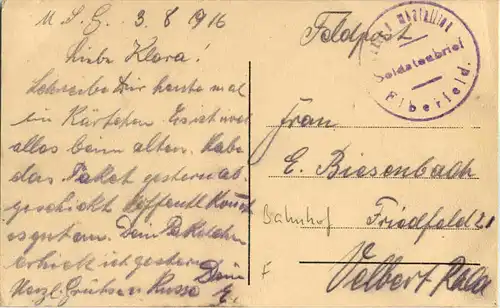 M. S. G. 3. 8. 1916
Liebe Klara!
Schreibe Dir heute mal
ein Kärtchen. Es ist noch
alles beim alten. Habe
das Paket gestern ab
geschickt hoffentl. kommt
es gut an. Dein Paketchen
erhielt ich gestern
Herzl. Grüße Dein
E.
Feldpost
Soldatenbrief
Elberfeld.
Frau
E. Biesenbach
Bahnhof Friedfeld 21
Velbert Rhld
F